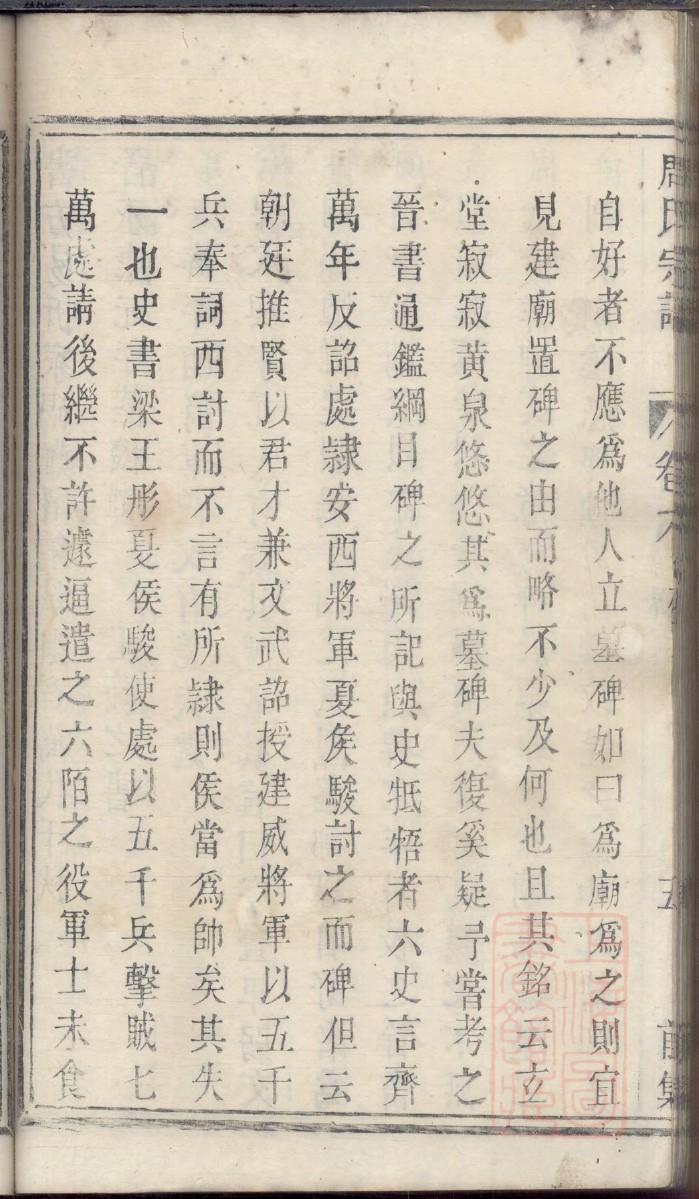 周氏宗譜 卷六 五
自好者不應爲他人立墓碑如曰爲廟爲之則宜
見建廟置碑之由而略不少及何也且其銘云玄
堂寂寂黄泉悠悠其爲墓碑夫復奚疑予嘗考之
晉書通鑑綱目碑之所記與史牴牾者六史言齊
萬年反詔處隷安西將軍夏矦駿討之而碑但云
朝廷推賢以君才兼文武詔授建威將軍以五千
兵奉詞西討而不言有所隷則侯當爲帥矣其失
一也史書梁王彤夏侯駿使處以五千兵擊賊七
萬處請後繼不許遽逼遣之六陌之役軍士未食